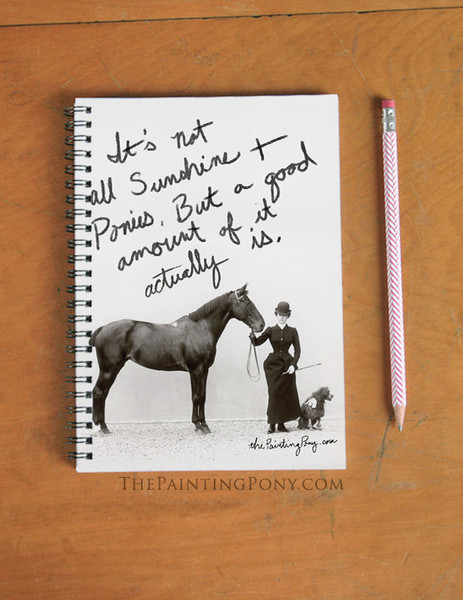 It's not
all Sunshine +
Ponies. But a good
amount of it
actually is.
thePaintingPony.com
THEPAINTINGPONY.COM